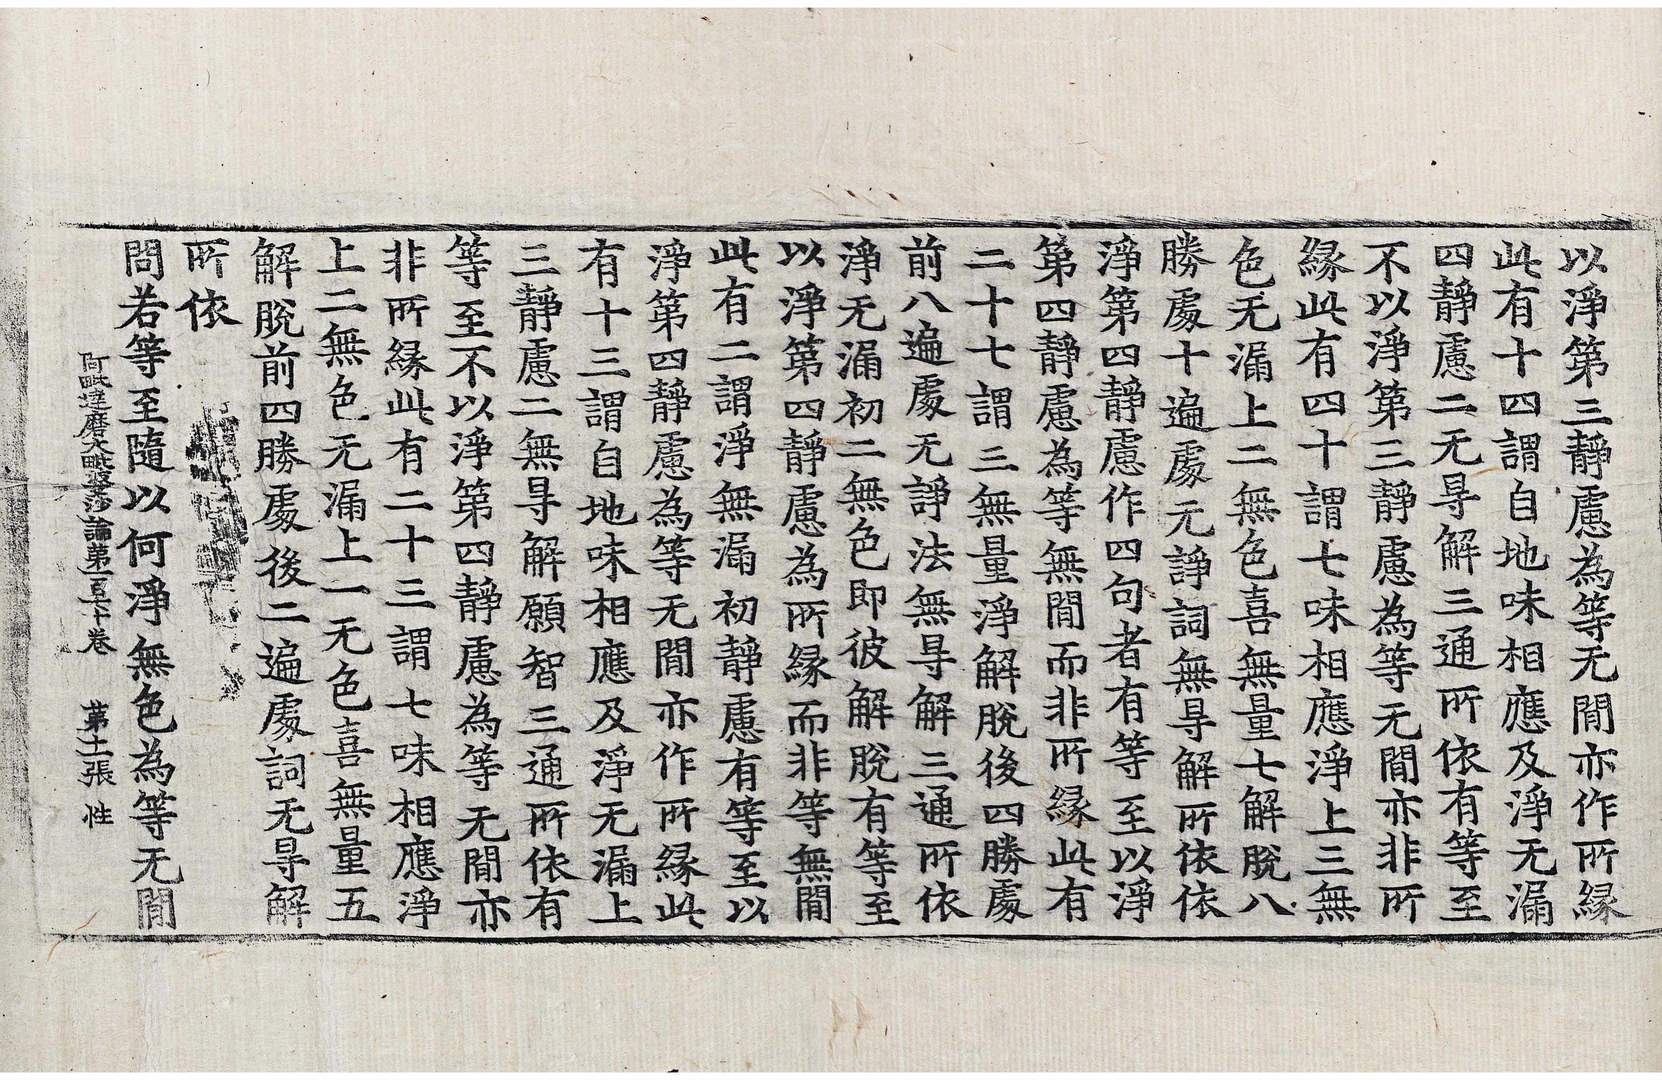 以淨第三靜慮為等无閒亦作所緣
此有十四謂自地味相應及淨无漏
四靜慮二无㝵解三通所依有等至
不以淨第三靜慮為等无閒亦非所
緣此有四十謂七味相應淨上三無
色无漏上二無色喜無量七解脫八
勝處十遍處无諍詞無㝵解所依依
淨第四靜慮作四句者有等至以淨
第四靜慮為等無閒而非所緣此有
二十七謂三無量淨解脫後四勝處
前八遍處无諍法無㝵解三通所依
淨无漏初二無色即彼解脫有等至
以淨第四靜慮為所緣而非等無閒
此有二謂淨無漏初靜慮有等至以
淨第四靜慮為等无閒亦作所緣此
有十三謂自地味相應及淨无漏上
三靜慮二無㝵解願智三通所依有
等至不以淨第四靜慮為等无閒亦
非所緣此有二十三謂七味相應淨
上二無色无漏上一无色喜無量五
解脫前四勝處後二遍處詞无㝵解
所依
問若等至隨以何淨無色為等无閒
阿毗達磨大毗婆沙論第一百六十卷 第十一張 性